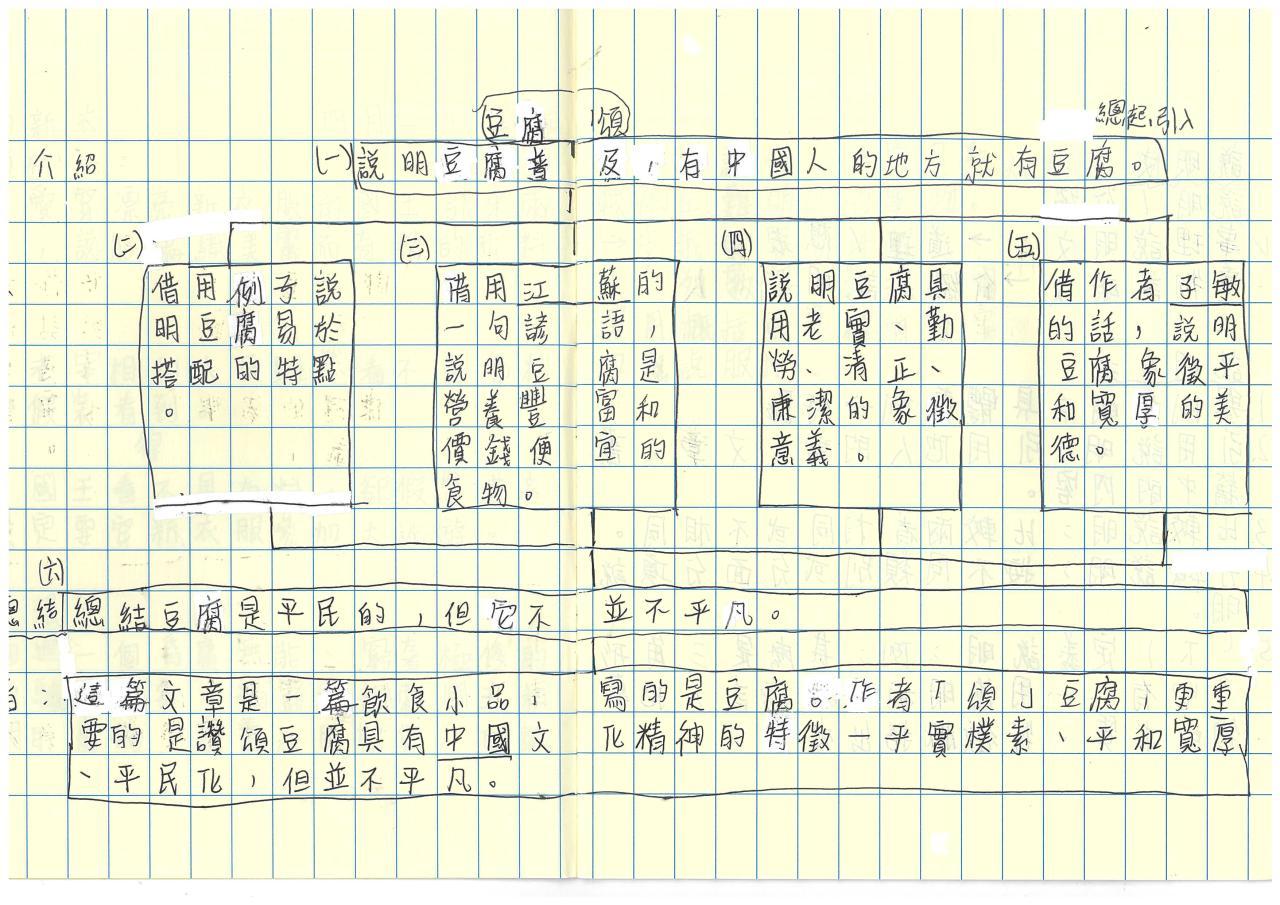 豆腐頌
總起引入
介紹
(一) 說明豆腐普及,有中國人的地方就有豆腐。
(二)
借用例子說
明豆腐易於
搭配的特點
。
(三)
借用江蘇的
一句諺語,
說明豆腐是
營養豐富和
價錢便宜的
食物。
(四)
說明豆腐具
用老實、勤
勞、清正、
廉潔的象徵
意義。
(五)
借作者子敏
的話,說明
豆腐象徵平
和寬厚的美
德。
(六)
總結 總結豆腐是平民的,但它不並不平凡。
:這篇文章是一篇飲食小品,寫的是豆腐。作者「頌」豆腐,更重
要的是讚頌豆腐具有中國文化精神的特徵—平實樸素、平和寬厚
、平民化,但並不平凡。